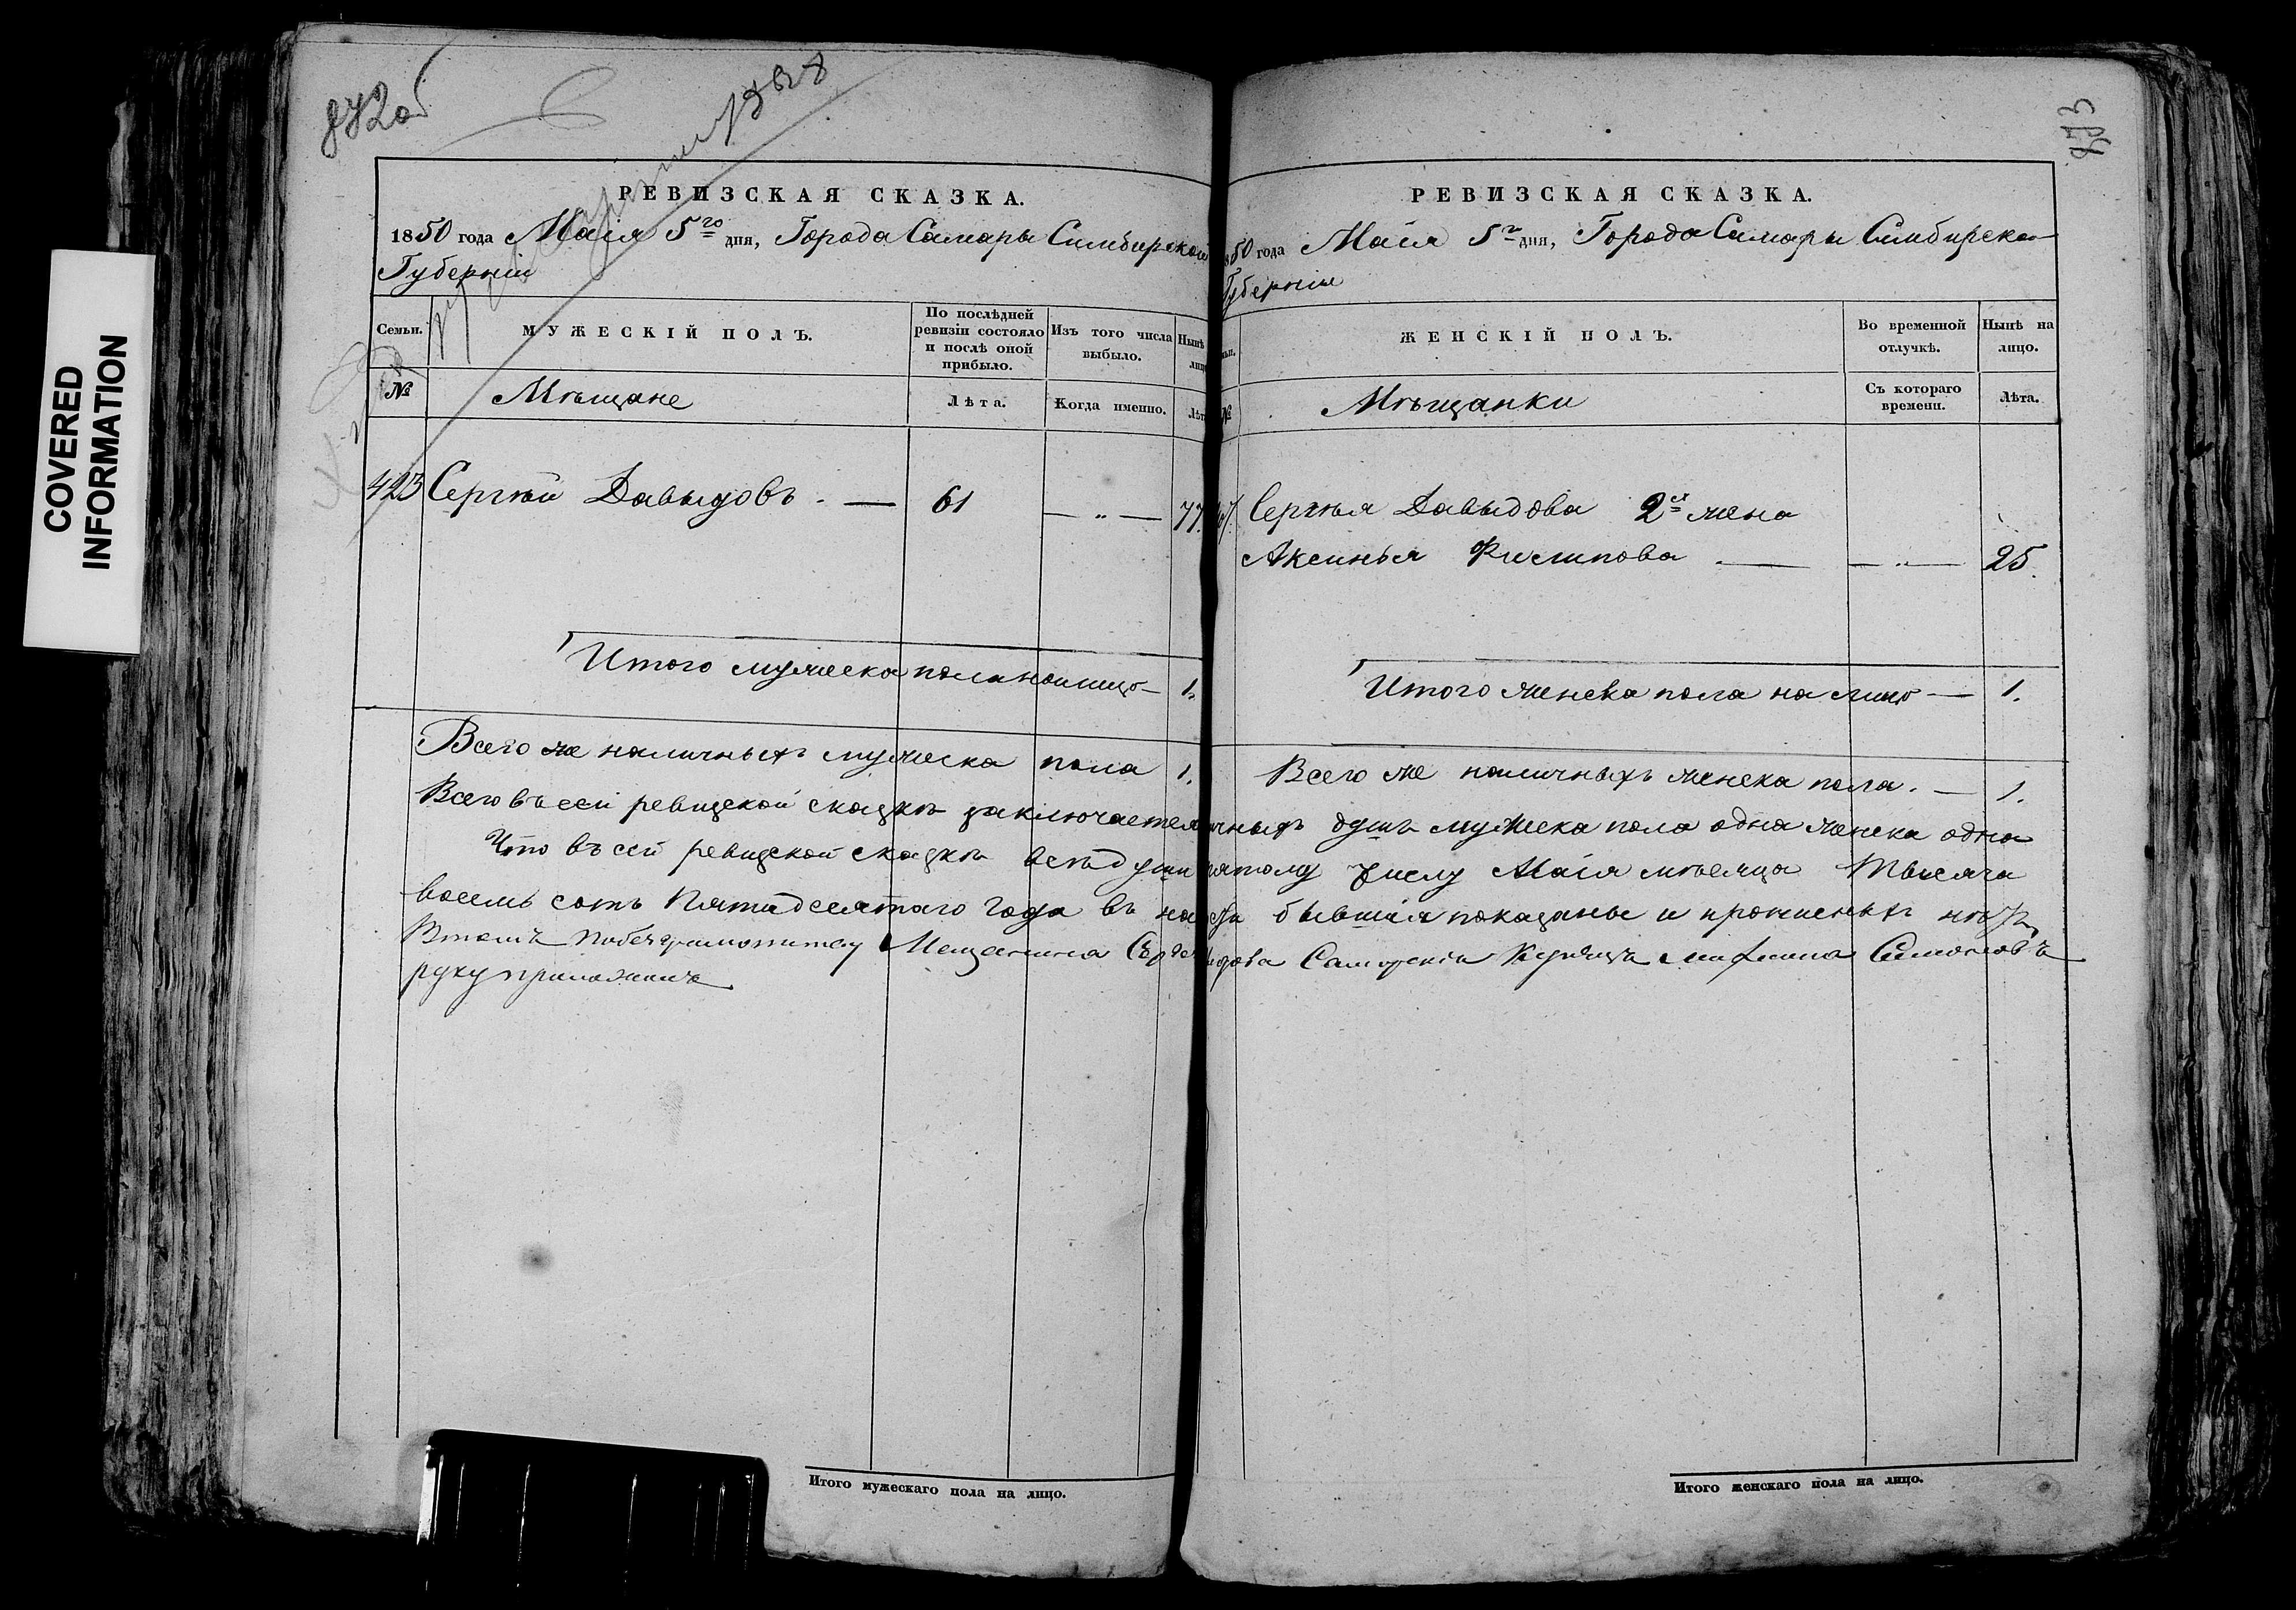 COVERED
INFORMATION
872об
РЕВИЗСКАЯ СКАЗКА.
1850 года Маія 5го дня, Города Самары Симбирской
Губерніи
Семьи.
МУЖЕСКІЙ ПОЛЪ.
По послѣдней
ревизіи состояло
и послѣ оной
прибыло.
Изъ того числа
выбыло.
Нынѣ
лиц
№
Мѣщане
Лѣта.
Когда именно.
Лѣт
423 Сергѣй Давыдовъ. — 61 — „ — 77.
Итого мужеска пола налицо — 1.
Всего же наличныхъ мужеска пола 1.
Всего въ сей ревизской сказкѣ заключается
Что въ сей ревизской сказкѣ всѣ души
восемь сотъ Пятидесятаго года въ
Мещанина
руку приложилъ
Итого мужескаго пола на лицо.
873
РЕВИЗСКАЯ СКАЗКА.
50 года Маія 5го дня, Города Самары Симбирско
Губерніи
ЖЕНСКІЙ ПОЛЪ.
Во временной
отлучкѣ.
Нынѣ на
лицо.
№
Мѣщанки
Съ котораго
времени.
Лѣта.
Сергѣя Давыдова 2я жена
Аксинья Филипова — — „ — 25.
Итого женска пола на лицо — 1.
Всего же наличныхъ женска пола. — 1.
чныхъ душъ мужеска пола одна женска одна
пятому числу Маія мѣсяца Тысяча
бывшія показаны и прописныхъ нѣтъ,
Самарскій Купецъ Симоновъ
Итого женскаго пола на лицо.